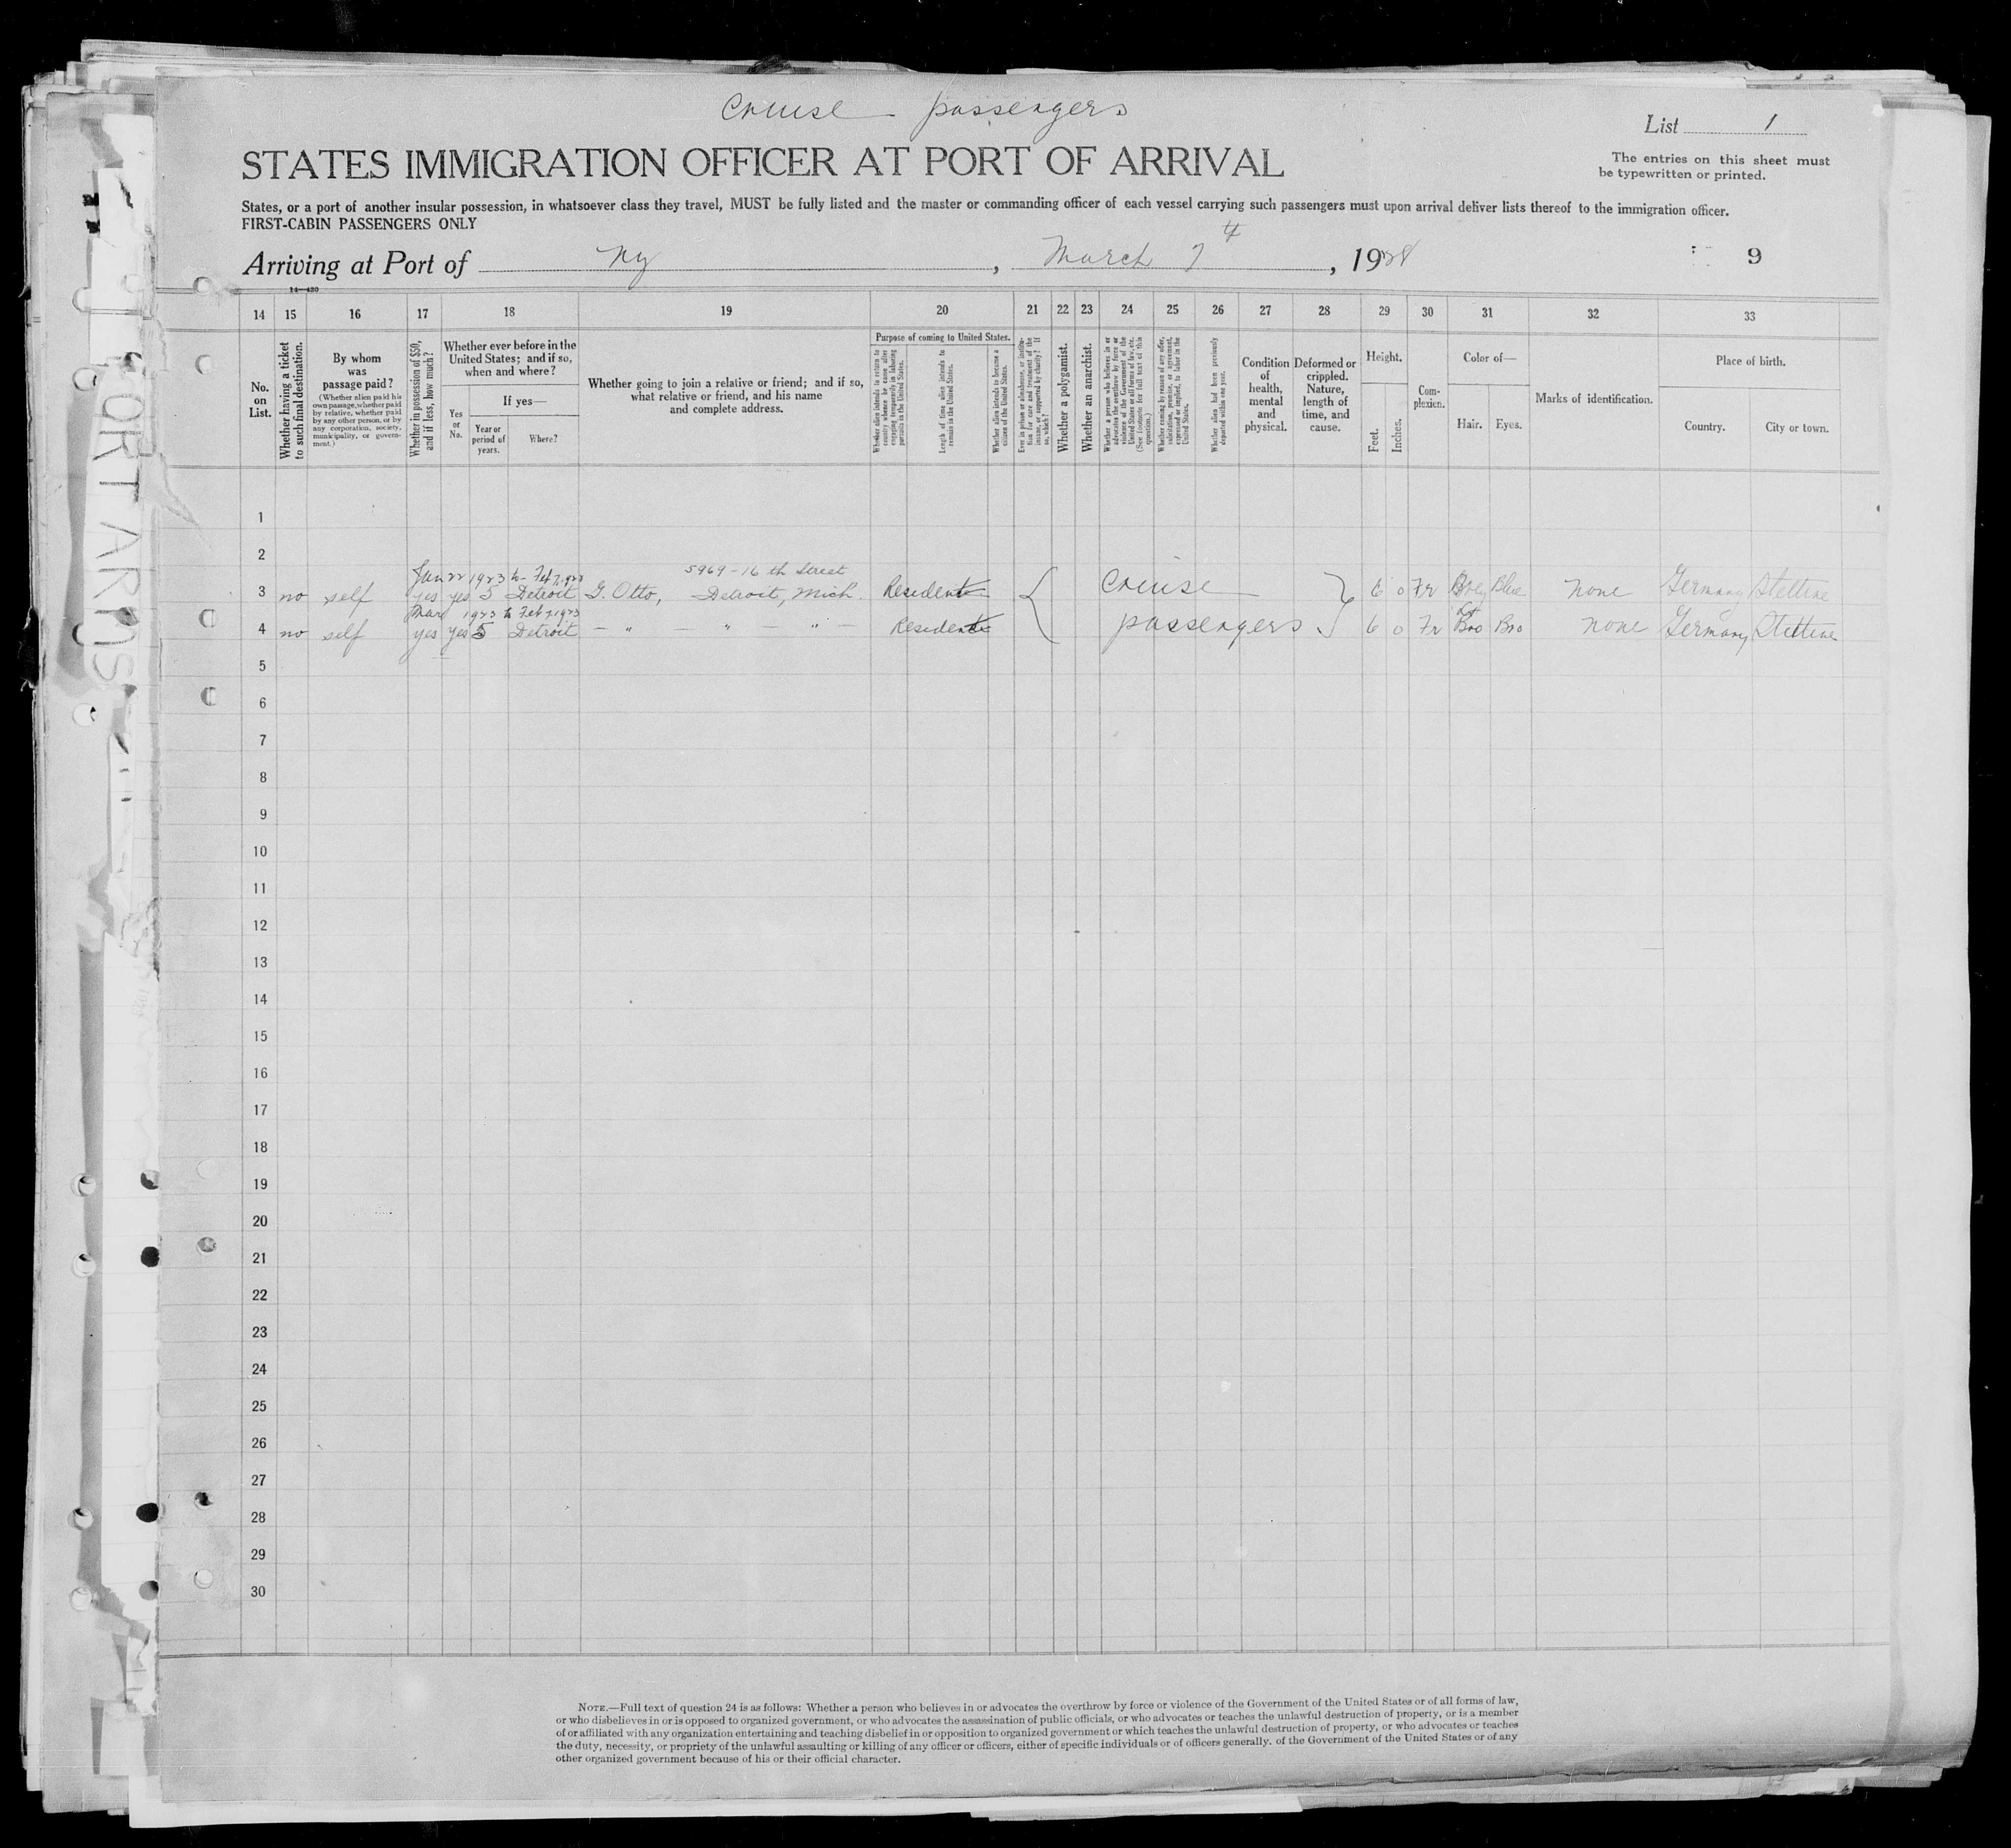 Cruise passengers
List 1
STATES IMMIGRATION OFFICER AT PORT OF ARRIVAL
The entries on this sheet must
be typewritten or printed.
States, or a port of another insular possession, in whatsoever class they travel, MUST be fully listed and the master or commanding officer of each vessel carrying such passengers must upon arrival deliver lists thereof to the immigration officer.
FIRST-CABIN PASSENGERS ONLY
Arriving at Port of NY, March 7th, 1928
9
14—430
14 15 16 17 18 19 20 21 22 23 24 25 26 27 28 29 30 31 32 33
No.
on
List.
Whether having a ticket
to such final destination.
By whom
was
passage paid?
(Whether alien paid his
own passage, whether paid
by relative, whether paid
by any other person, or by
any corporation, society,
municipality, or govern-
ment.)
Whether in possession of $50,
and if less, how much?
Whether ever before in the
United States; and if so,
when and where?
Yes
or
No.
If yes—
Year or
period of
years.
Where?
Whether going to join a relative or friend; and if so,
what relative or friend, and his name
and complete address.
Purpose of coming to United States.
Whether alien intends to return to
country whence he came after
engaging temporarily in laboring
pursuits in the United States.
Length of time alien intends to
remain in the United States.
Whether alien intends to become a
citizen of the United States.
Ever in prison or almshouse, or institu-
tion for care and treatment of the
insane, or supported by charity? If
so, which?
Whether a polygamist.
Whether an anarchist.
Whether a person who believes in or
advocates the overthrow by force or
violence of the Government of the
United States or all forms of law, etc.
(See footnote for full text of this
question.)
Whether coming by reason of any offer,
solicitation, promise, or agreement,
expressed or implied, to labor in the
United States.
Whether alien had been previously
deported within one year.
Condition
of
health,
mental
and
physical.
Deformed or
crippled.
Nature,
length of
time, and
cause.
Height.
Feet.
Inches.
Com-
plexion.
Color of—
Hair.
Eyes.
Marks of identification.
Place of birth.
Country.
City or town.
1
2
Jan 22 1923 to Feb 7, 1928 5969 - 16th Street
3 no self yes yes 5 Detroit G. Otto, Detroit, Mich. Resident Cruise 6 0 Fr Grey Blue None Germany Stettine
Mar 1923 to Feb 7, 1928
4 no self yes yes 5 Detroit — " — " — " — Resident passengers 6 0 Fr Bro Bro None Germany Stettine
5
6
7
8
9
10
11
12
13
14
15
16
17
18
19
20
21
22
23
24
25
26
27
28
29
30
NOTE.—Full text of question 24 is as follows: Whether a person who believes in or advocates the overthrow by force or violence of the Government of the United States or of all forms of law,
or who disbelieves in or is opposed to organized government, or who advocates the assassination of public officials, or who advocates or teaches the unlawful destruction of property, or is a member
of or affiliated with any organization entertaining and teaching disbelief in or opposition to organized government or which teaches the unlawful destruction of property, or who advocates or teaches
the duty, necessity, or propriety of the unlawful assaulting or killing of any officer or officers, either of specific individuals or of officers generally, of the Government of the United States or of any
other organized government because of his or their official character.